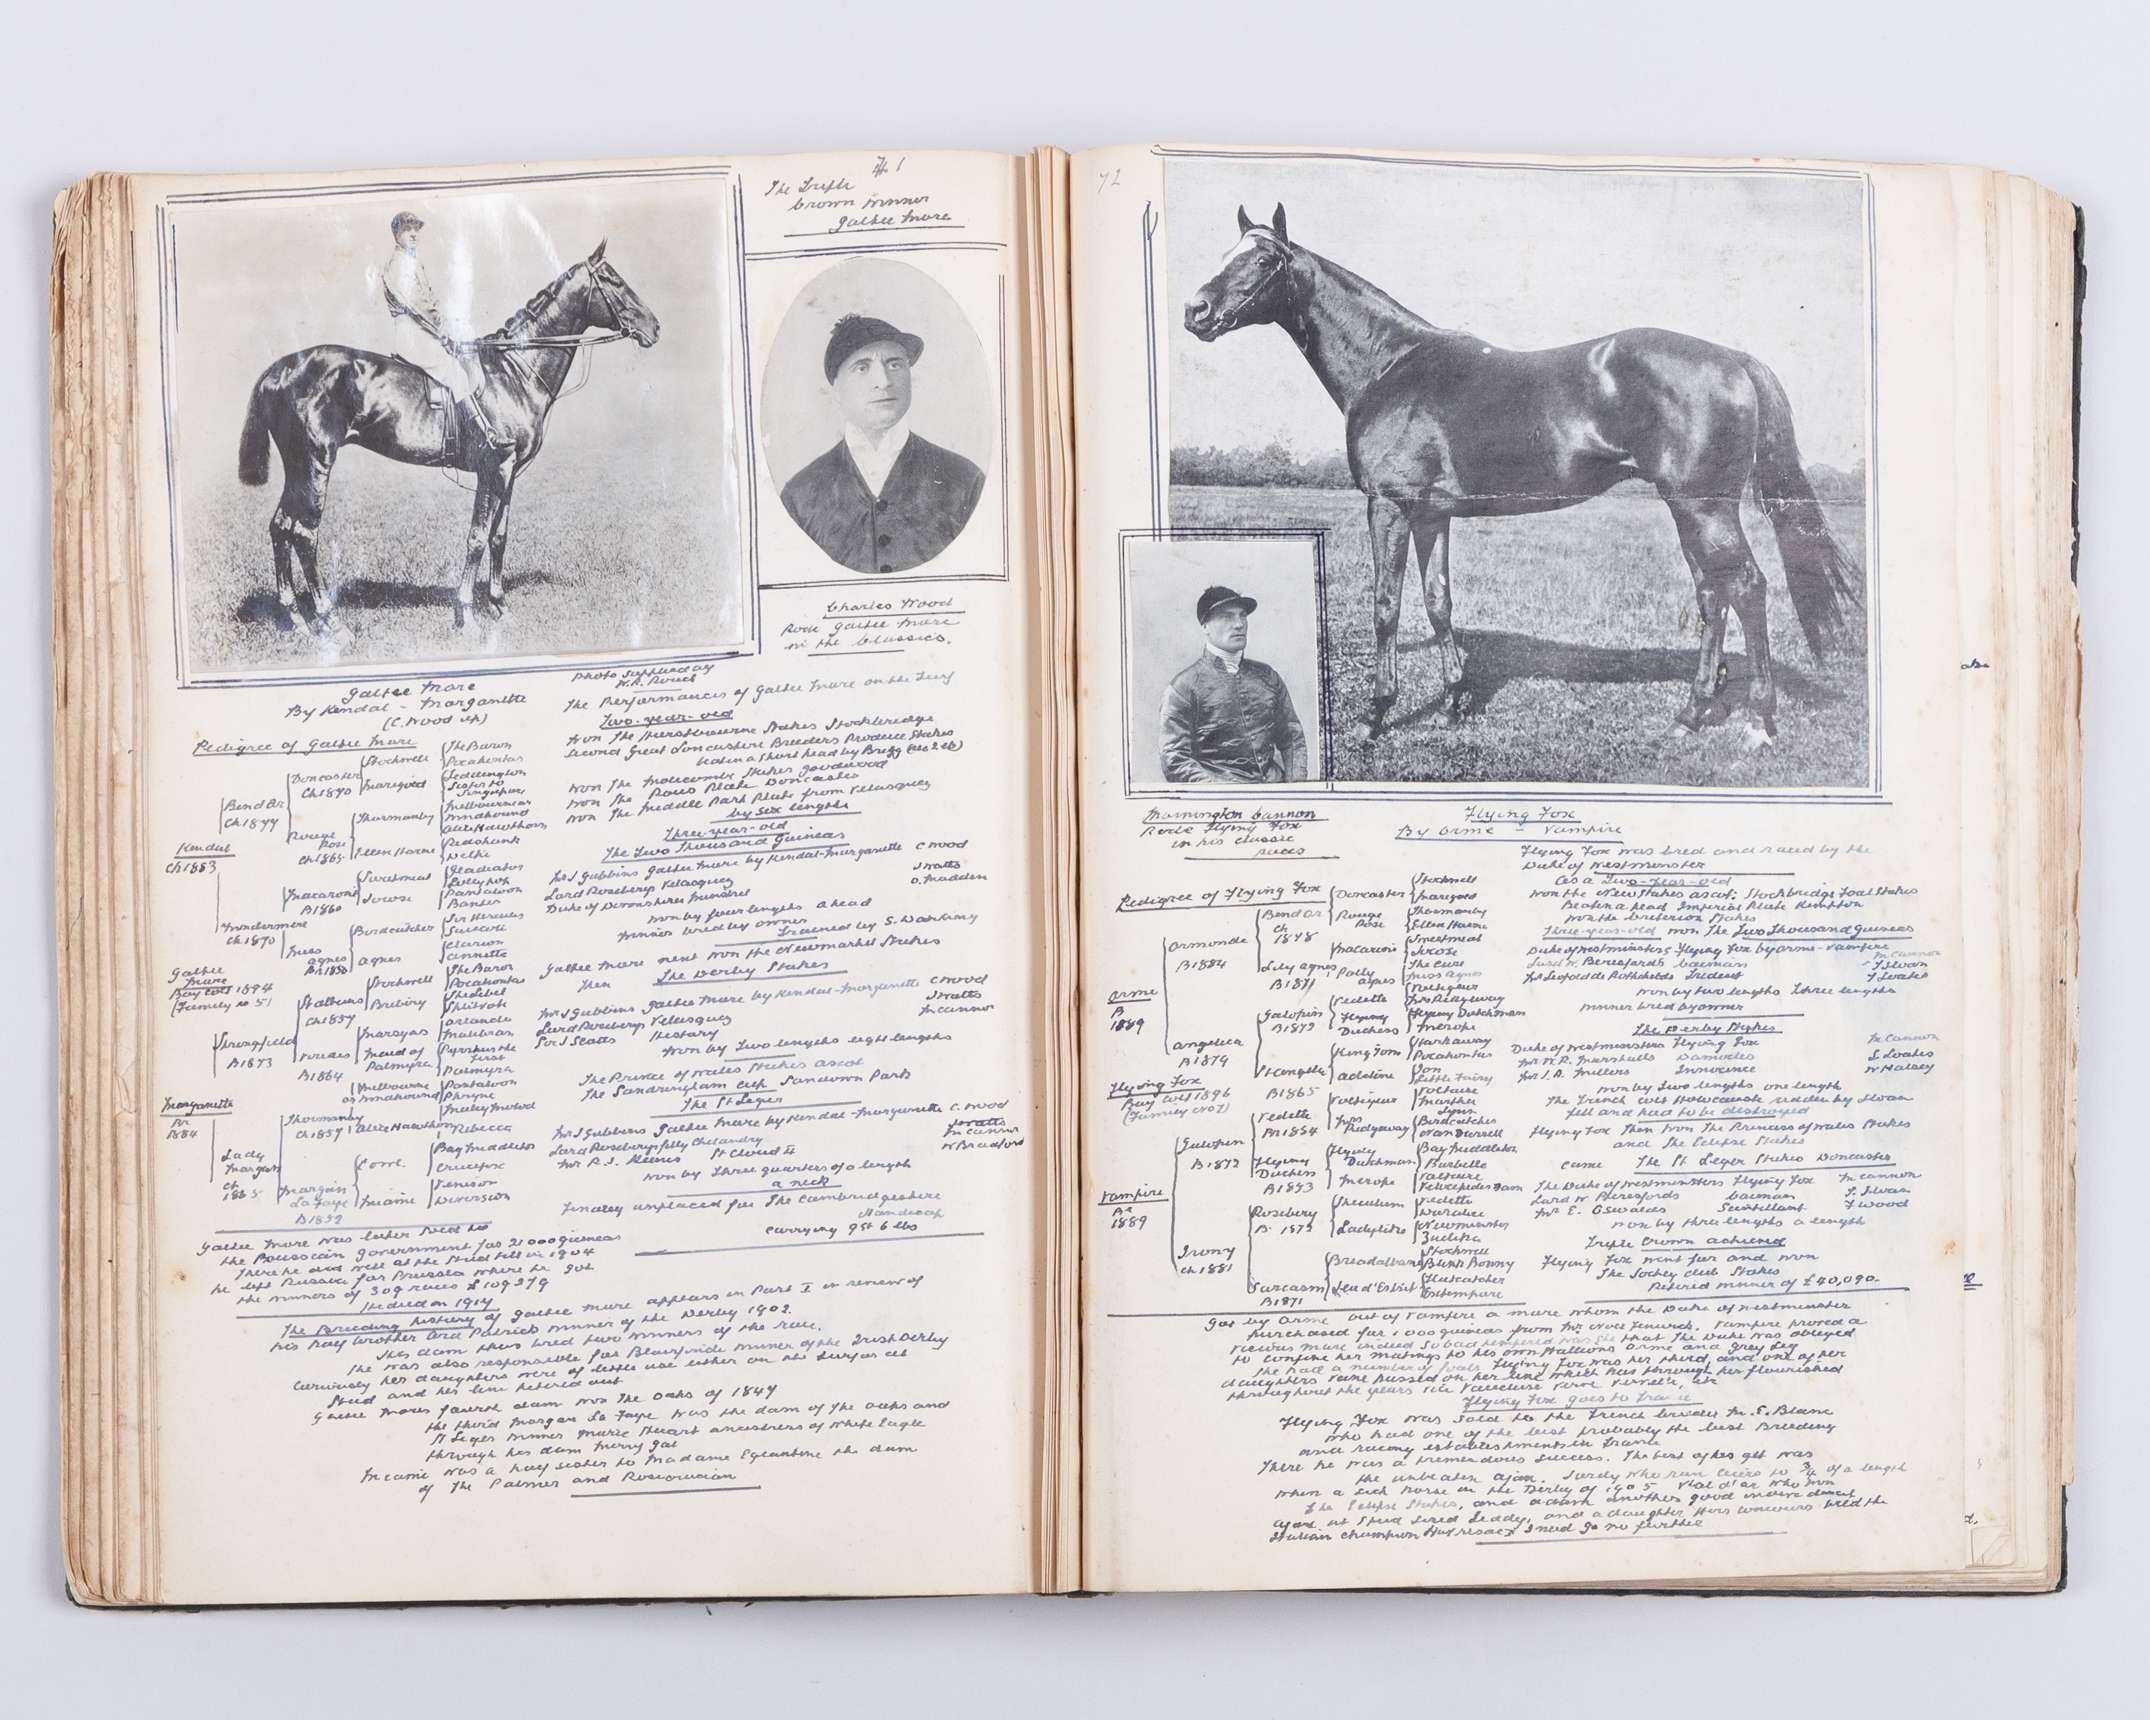 The Triple
Crown Winner
Galtee More
Charles Wood
Rode Galtee More
in the Classics.
Galtee More
By Kendal - Morganette
(C. Wood up)
Photo supplied by
W. A. Rouch
Pedigree of Galtee More
Kendal
Ch 1883
Bend Or
Ch 1877
Doncaster
Ch 1870
Stockwell
The Baron
Pocahontas
Marigold
Teddington
Sister to
Singapore
Rouge
Rose
Ch 1865
Thormanby
Melbourne or
Windhound
Alice Hawthorn
Ellen Horne
Redshank
Delhi
Windermere
Ch 1870
Macaroni
B 1860
Sweetmeat
Gladiator
Lollypop
Jocose
Pantaloon
Banter
Miss
Agnes
Birdcatcher
Sir Hercules
Guiccioli
Agnes
Clarion
Annette
Galtee
More
Bay Colt 1894
(Family no 5)
Morganette
Springfield
B 1873
St Albans
Ch 1857
Stockwell
The Baron
Pocahontas
Bribery
The Libel
Splitvote
Viridis
B 1864
Marsyas
Orlando
Malibran
Maid of
Palmyra
Pyrrhus the
First
Palmyra
Lady
Morgan
Ch
1865
Thormanby
Ch 1857
Melbourne
or Windhound
Pantaloon
Phryne
Alice Hawthorn
Muley Moloch
Rebecca
Morgan
La Faye
Cowl
Bay Middleton
Crucifix
Miami
Venison
Diversion
The Performances of Galtee More on the Turf
Two-year-old
Won The Hurstbourne Stakes Stockbridge
Second Great Lancashire Breeders Produce Stakes
beaten a short head by Brigg
Won The Molecombe Stakes Goodwood
Won The Rous Plate Doncaster
Won The Middle Park Plate from Velasquez
by six lengths
Three-year-old
The Two Thousand Guineas
Mr J Gubbins Galtee More by Kendal-Morganette C Wood
Lord Roseberys Velasquez J Watts
Duke of Devonshires Minstrel O. Madden
Won by four lengths a head
Winner bred by owner
Trained by S. Darling
Galtee More next won the Newmarket Stakes
Then The Derby Stakes
Mr J Gubbins Galtee More by Kendal-Morganette C Wood
Lord Roseberys Velasquez J Watts
Won by Two lengths eight lengths
The Prince of Wales Stakes Ascot
The Sandringham Cup Sandown Park
The St Leger
Mr J Gubbins Galtee More by Kendal-Morganette C. Wood
Lord Roseberys filly Chelandry J Watts
St Cloud II
W Bradford
Won by Three quarters of a length
a neck
Finally unplaced for The Cambridgeshire
Handicap
Carrying 9 st 6 lbs
Galtee More was later sold to
the Russian Government for 21000 guineas
There he did well at the Stud till in 1904
he left Russia for Prussia where he got
the winners of 309 races £109379
He died in 1917
The Breeding history of Galtee More appears in Part I in review of
his half brother Ard Patrick winner of the Derby 1902.
This dam thus bred two winners of the race.
She was also responsible for Blairfinde winner of the Irish Derby
Curiously her daughters were of little use either on the Turf or at
Stud and her line petered out
Galtee Mores fourth dam won The Oaks of 1847
the third Morgan La Faye was the dam of The Oaks and
St Leger winner Marie Stuart ancestress of White Eagle
through his dam Merry Gal
Miami was a half sister to Madame Eglantine the dam
of The Palmer and Rosicrucian
72
Mornington Cannon
Rode Flying Fox
in his classic
races
Flying Fox
By Orme - Vampire
Pedigree of Flying Fox
Orme
B
1889
Ormonde
B 1884
Bend Or
Ch
Doncaster
Stockwell
Marigold
Rouge
Rose
Thormanby
Ellen Horne
Lily Agnes
B 1871
Macaroni
Sweetmeat
Jocose
Polly
Agnes
The Cure
Miss Agnes
Angelica
B 1879
Galopin
B 1872
Vedette
Voltigeur
Mrs Ridgway
Flying
Duchess
Flying Dutchman
Merope
St Angela
B 1865
King Tom
Harkaway
Pocahontas
Adeline
Ion
Little Fairy
Flying Fox
Bay Colt 1896
(Family no 7)
Vampire
1889
Galopin
B 1872
Vedette
Br 1854
Voltigeur
Voltaire
Martha
Lynn
Mrs
Ridgway
Birdcatcher
Nan Darrell
Flying
Duchess
B 1853
Flying
Dutchman
Bay Middleton
Barbelle
Merope
Voltaire
Velocipedes Dam
Irony
Ch 1881
Rosebery
B 1872
Speculum
Vedette
Doralice
Ladylike
Newminster
Zuleika
Sarcasm
B 1871
Breadalbane
Stockwell
Blink Bonny
Jeu d'Esprit
Flatcatcher
Extempore
Flying Fox was bred and raced by the
Duke of Westminster
As a Two-year-old
Won the New Stakes Ascot: Stockbridge Foal Stakes
Beaten a head Imperial Plate Kempton
Won the Criterion Stakes
Three-year-old won The Two Thousand Guineas
Duke of Westminsters Flying Fox by Orme-Vampire M Cannon
Lord W. Beresfords Caiman T Sloan
Mr Leopold de Rothschilds Trident T Loates
Won by two lengths Three lengths
Winner bred by owner
The Derby Stakes
Duke of Westminsters Flying Fox M Cannon
Mr W. R. Marshalls Damocles S Loates
Mr J. A. Millers Innocence W Halsey
Won by Two lengths one length
The French colt Holocauste ridden by Sloan
fell and had to be destroyed
Flying Fox Then won The Princess of Wales Stakes
and The Eclipse Stakes
Came The St Leger Stakes Doncaster
The Duke of Westminsters Flying Fox M Cannon
Lord W Beresfords Caiman T. Sloan
Mr E. Oswalds Scintillant F Wood
Won by three lengths a length
Triple Crown achieved
Flying Fox went for and won
The Jockey Club Stakes
Retired winner of £40,090.
Got by Orme out of Vampire a mare whom the Duke of Westminster
purchased for 1000 guineas from Mr Noel Fenwick. Vampire proved a
vicious mare indeed so bad tempered was she that The Duke was obliged
to confine her matings to his own stallions Orme and Grey Leg
She had a number of foals Flying Fox was her third and one of her
daughters Vane passed on her line which has through her flourished
throughout the years via Vaucluse
Flying Fox goes to France
Flying Fox was sold to the French breeder M. E. Blanc
who had one of the best probably the best Breeding
and racing establishments in France
There he was a tremendous success. The best of his get was
the unbeaten Ajax. Jardy who ran Cicero to 3/4 of a length
when a sick horse in the Derby of 1905 Val d'Or who won
The Eclipse Stakes, and Adam another good
Ajax at Stud sired Teddy, and a daughter Hors Concours bred the
Italian champion I need go no further